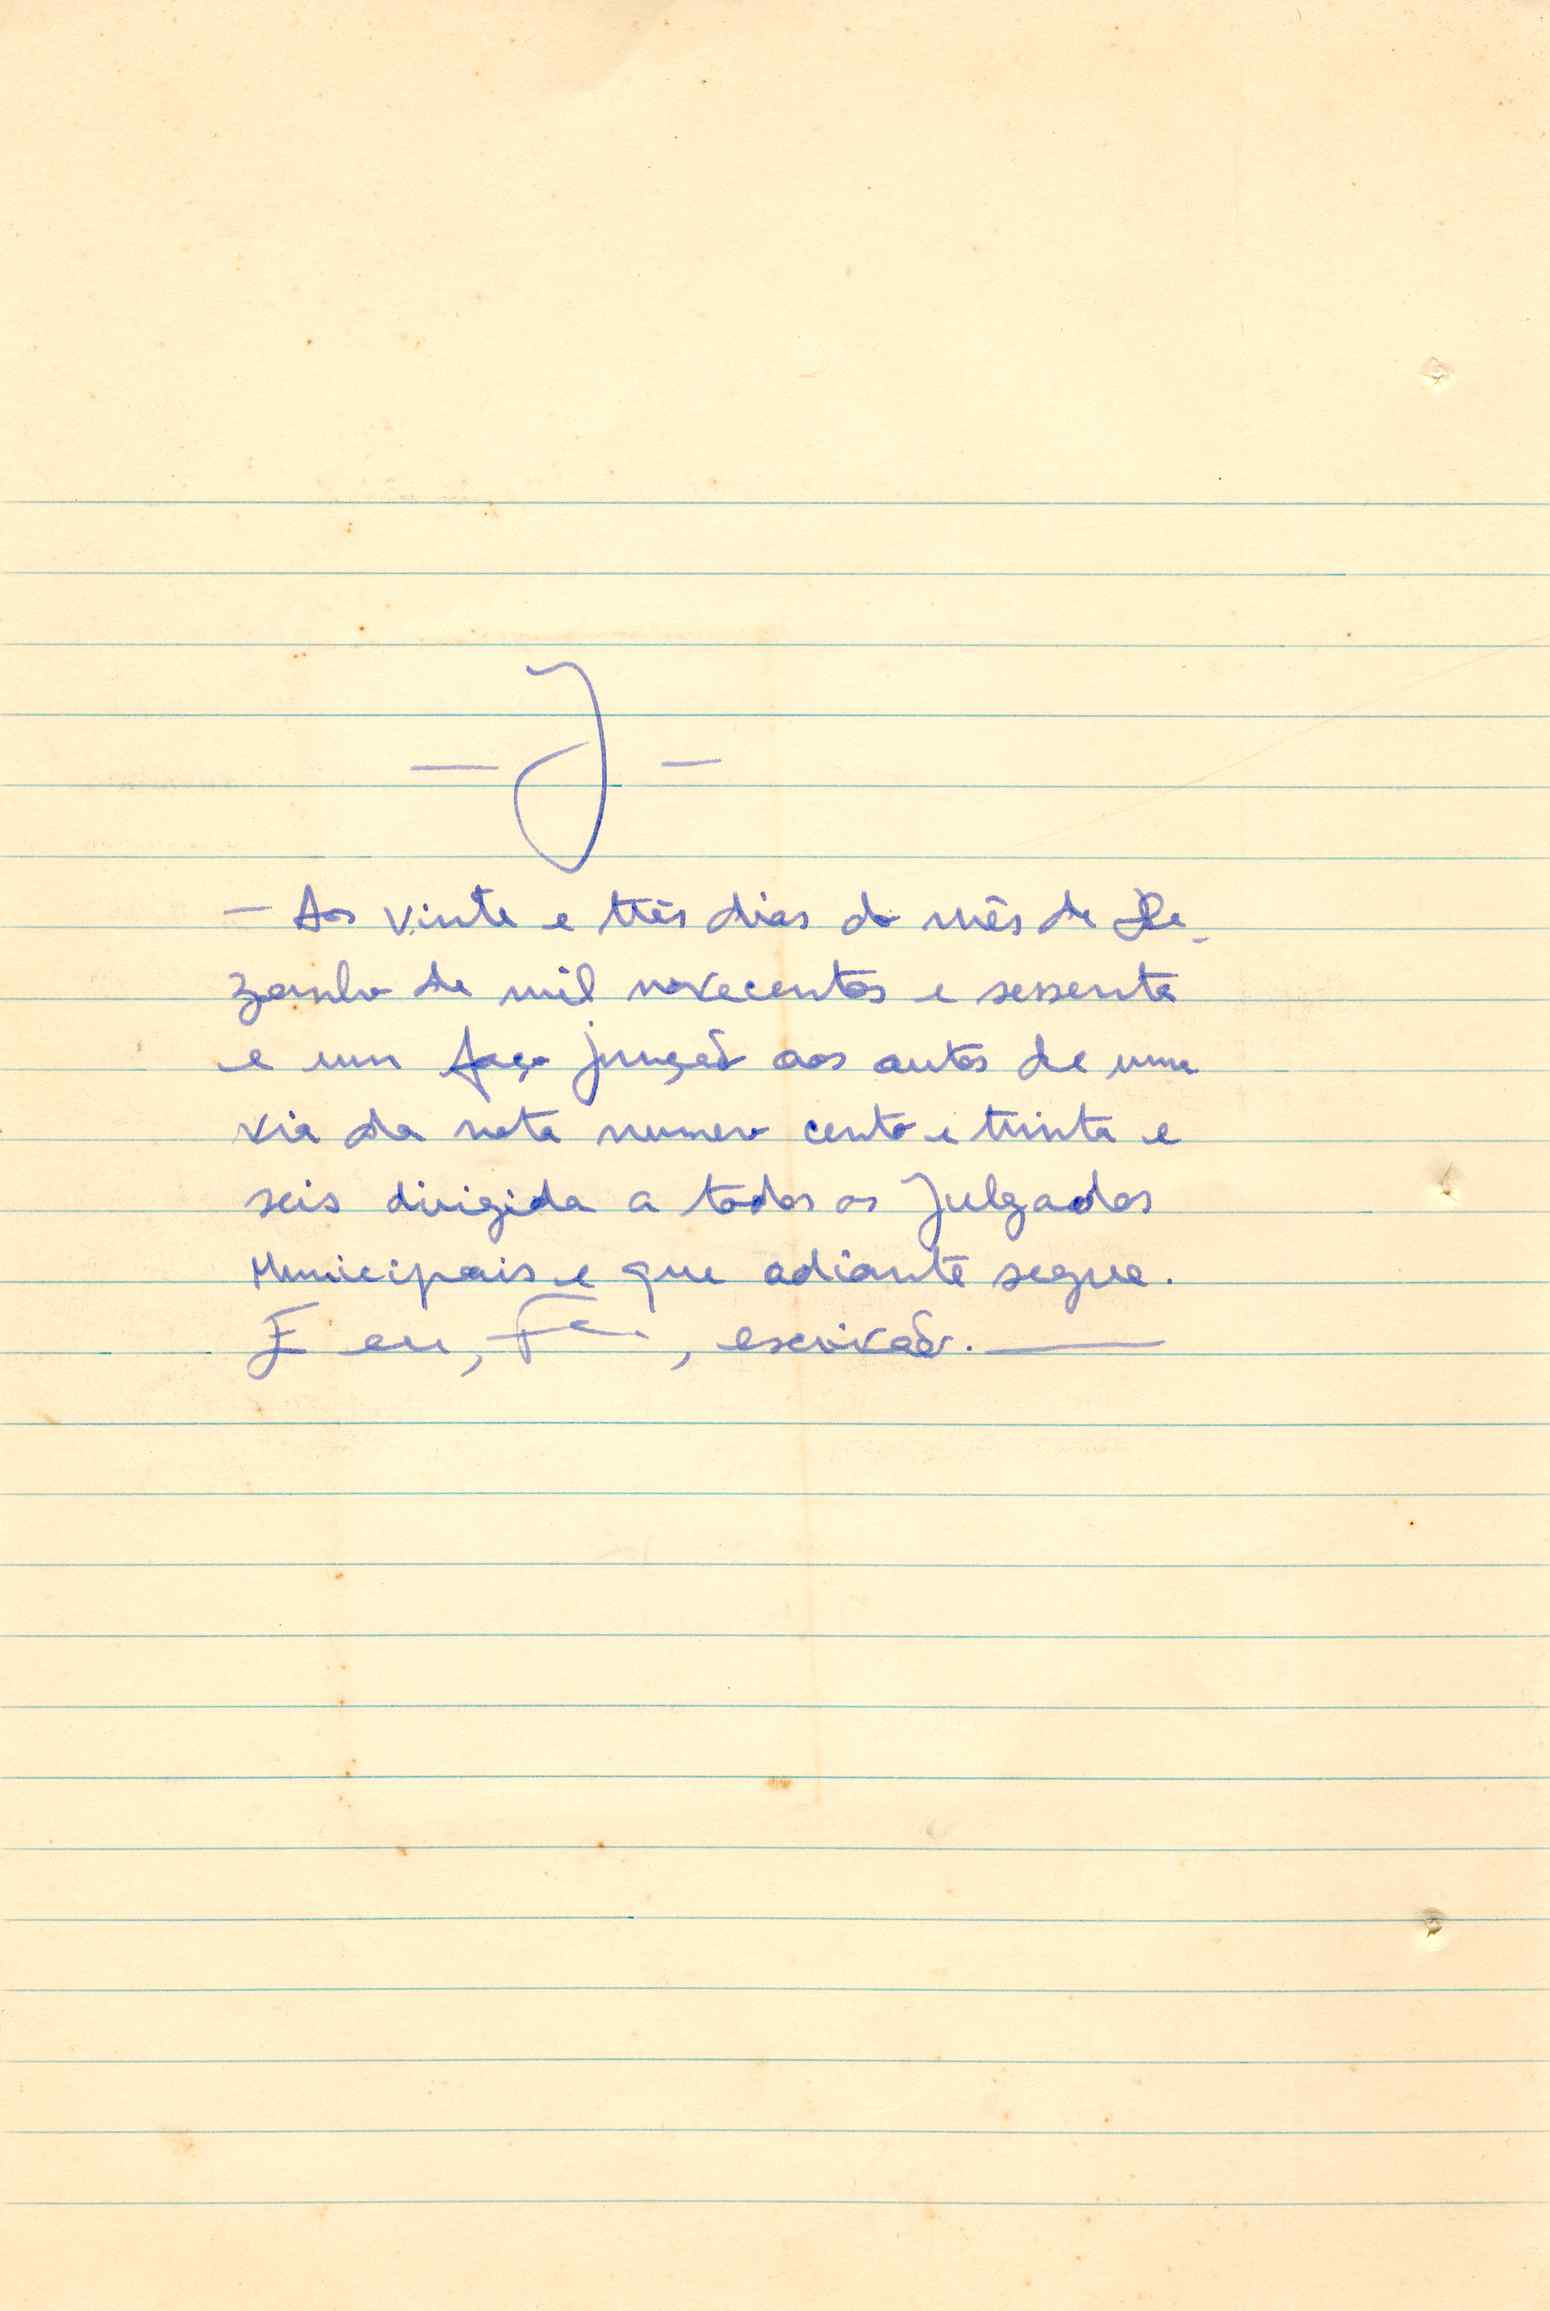 — J —
— Aos vinte e três dias do mês de De-
zembro de mil novecentos e sessenta
e um faço junção aos autos de uma
via da nota numero cento e trinta e
seis dirigida a todos os Julgados
Municipais e que adiante segue.
E eu, , escrivão. —